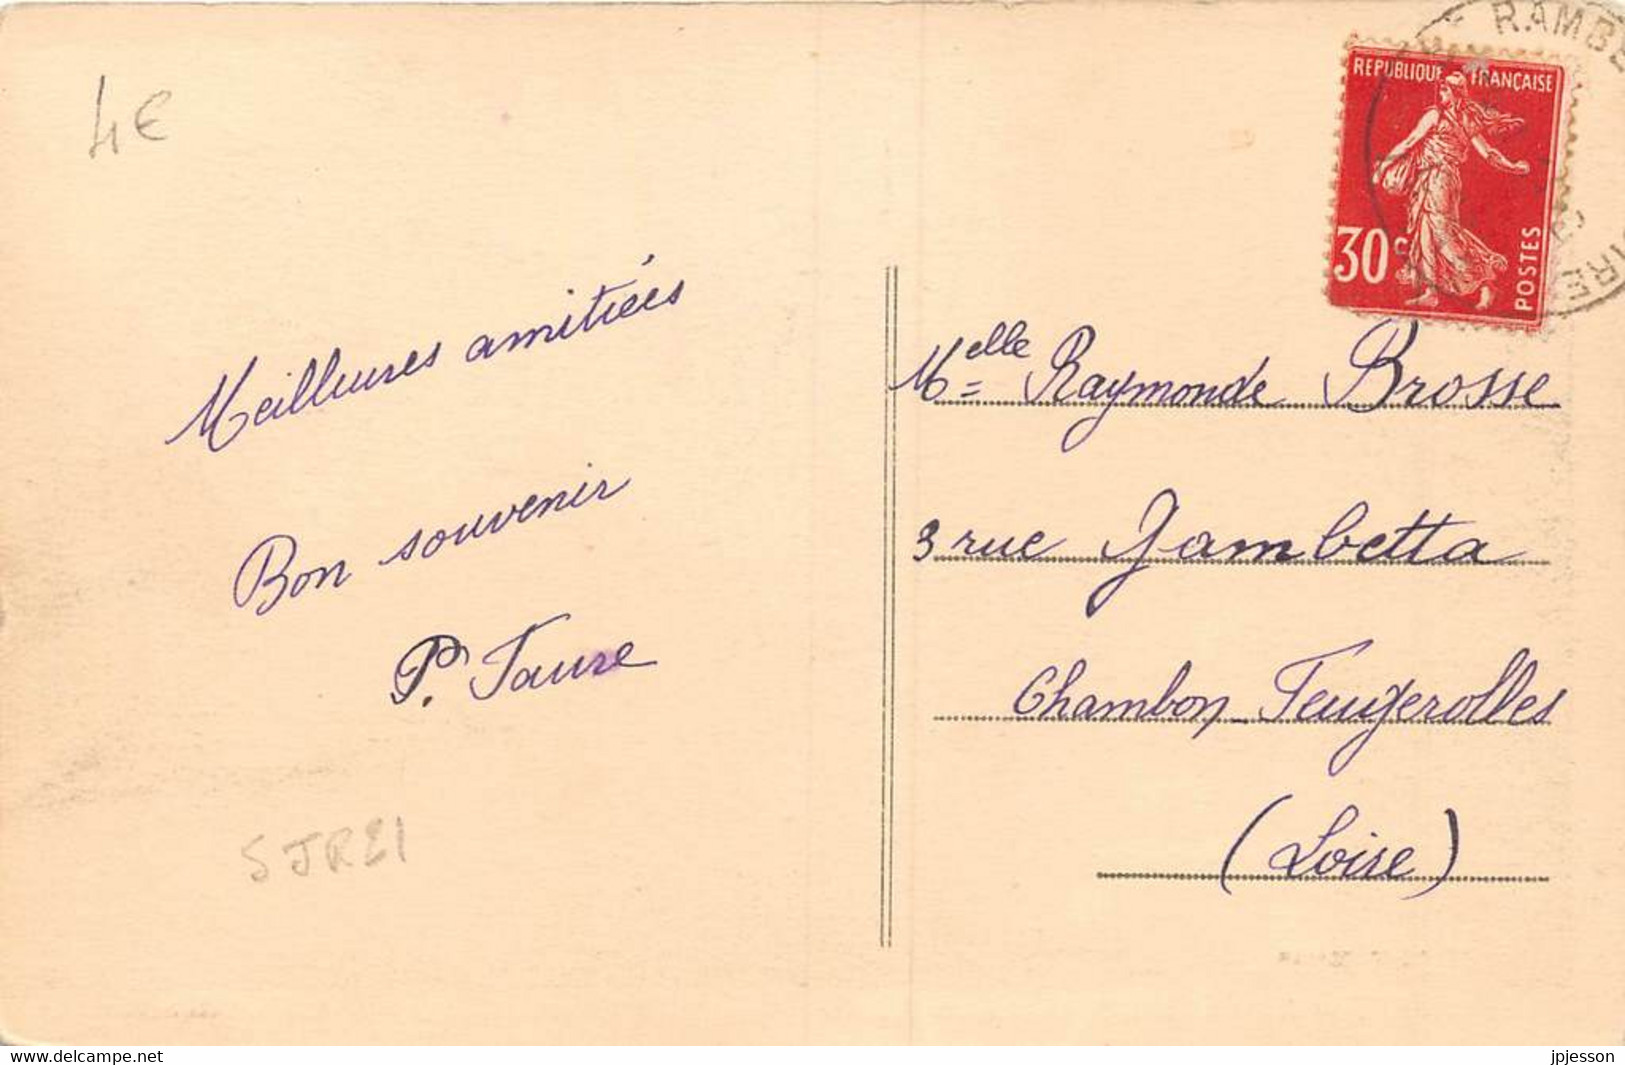 4€
RAMBE
REPUBLIQUE FRANÇAISE
30c
POSTES
Meilleures amitiées
Bon souvenir
P. Faure
Melle Raymonde Brosse
3 rue Gambetta
Chambon-Feugerolles
(Loire)
www.delcampe.net
jpjesson